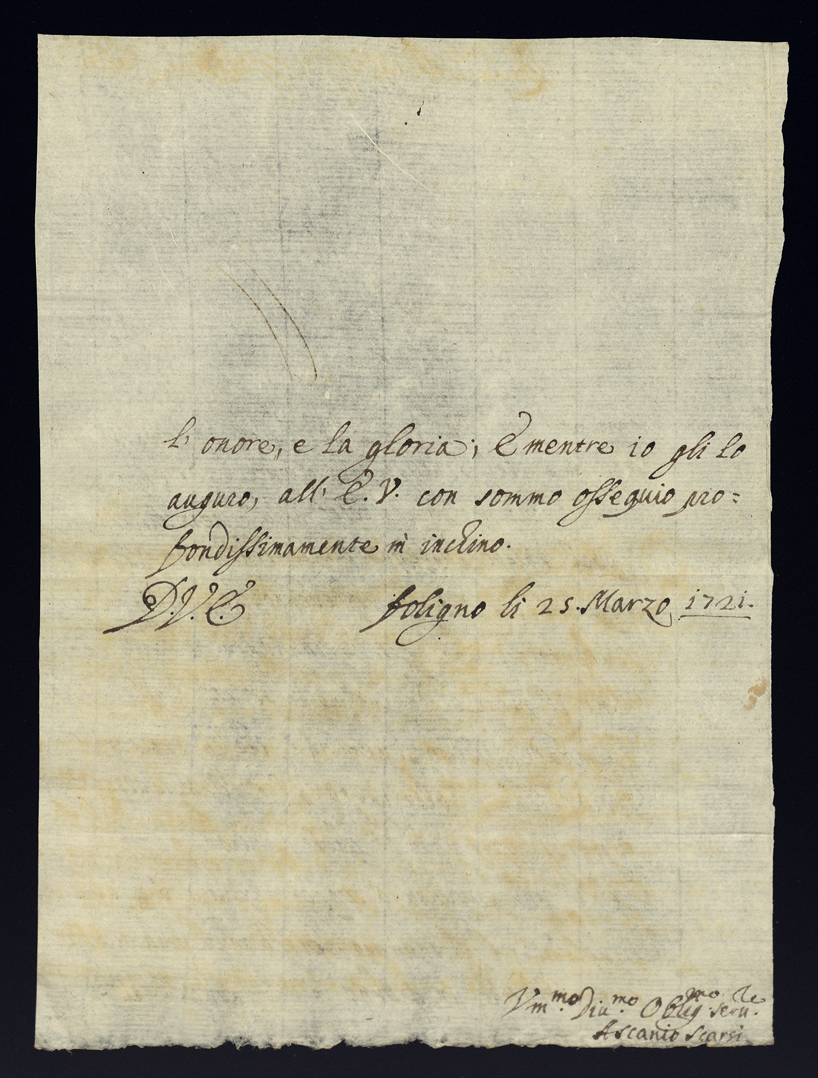 l' onore, e la gloria; E mentre io gli lo
auguro, all' E. V. con sommo ossequio pro=
fondissimamente m' inchino.
D. V. E.
foligno li 25. Marzo 1721.
Vm.mo Diu.mo Obblig.mo seru.re
Ascanio Scarsi